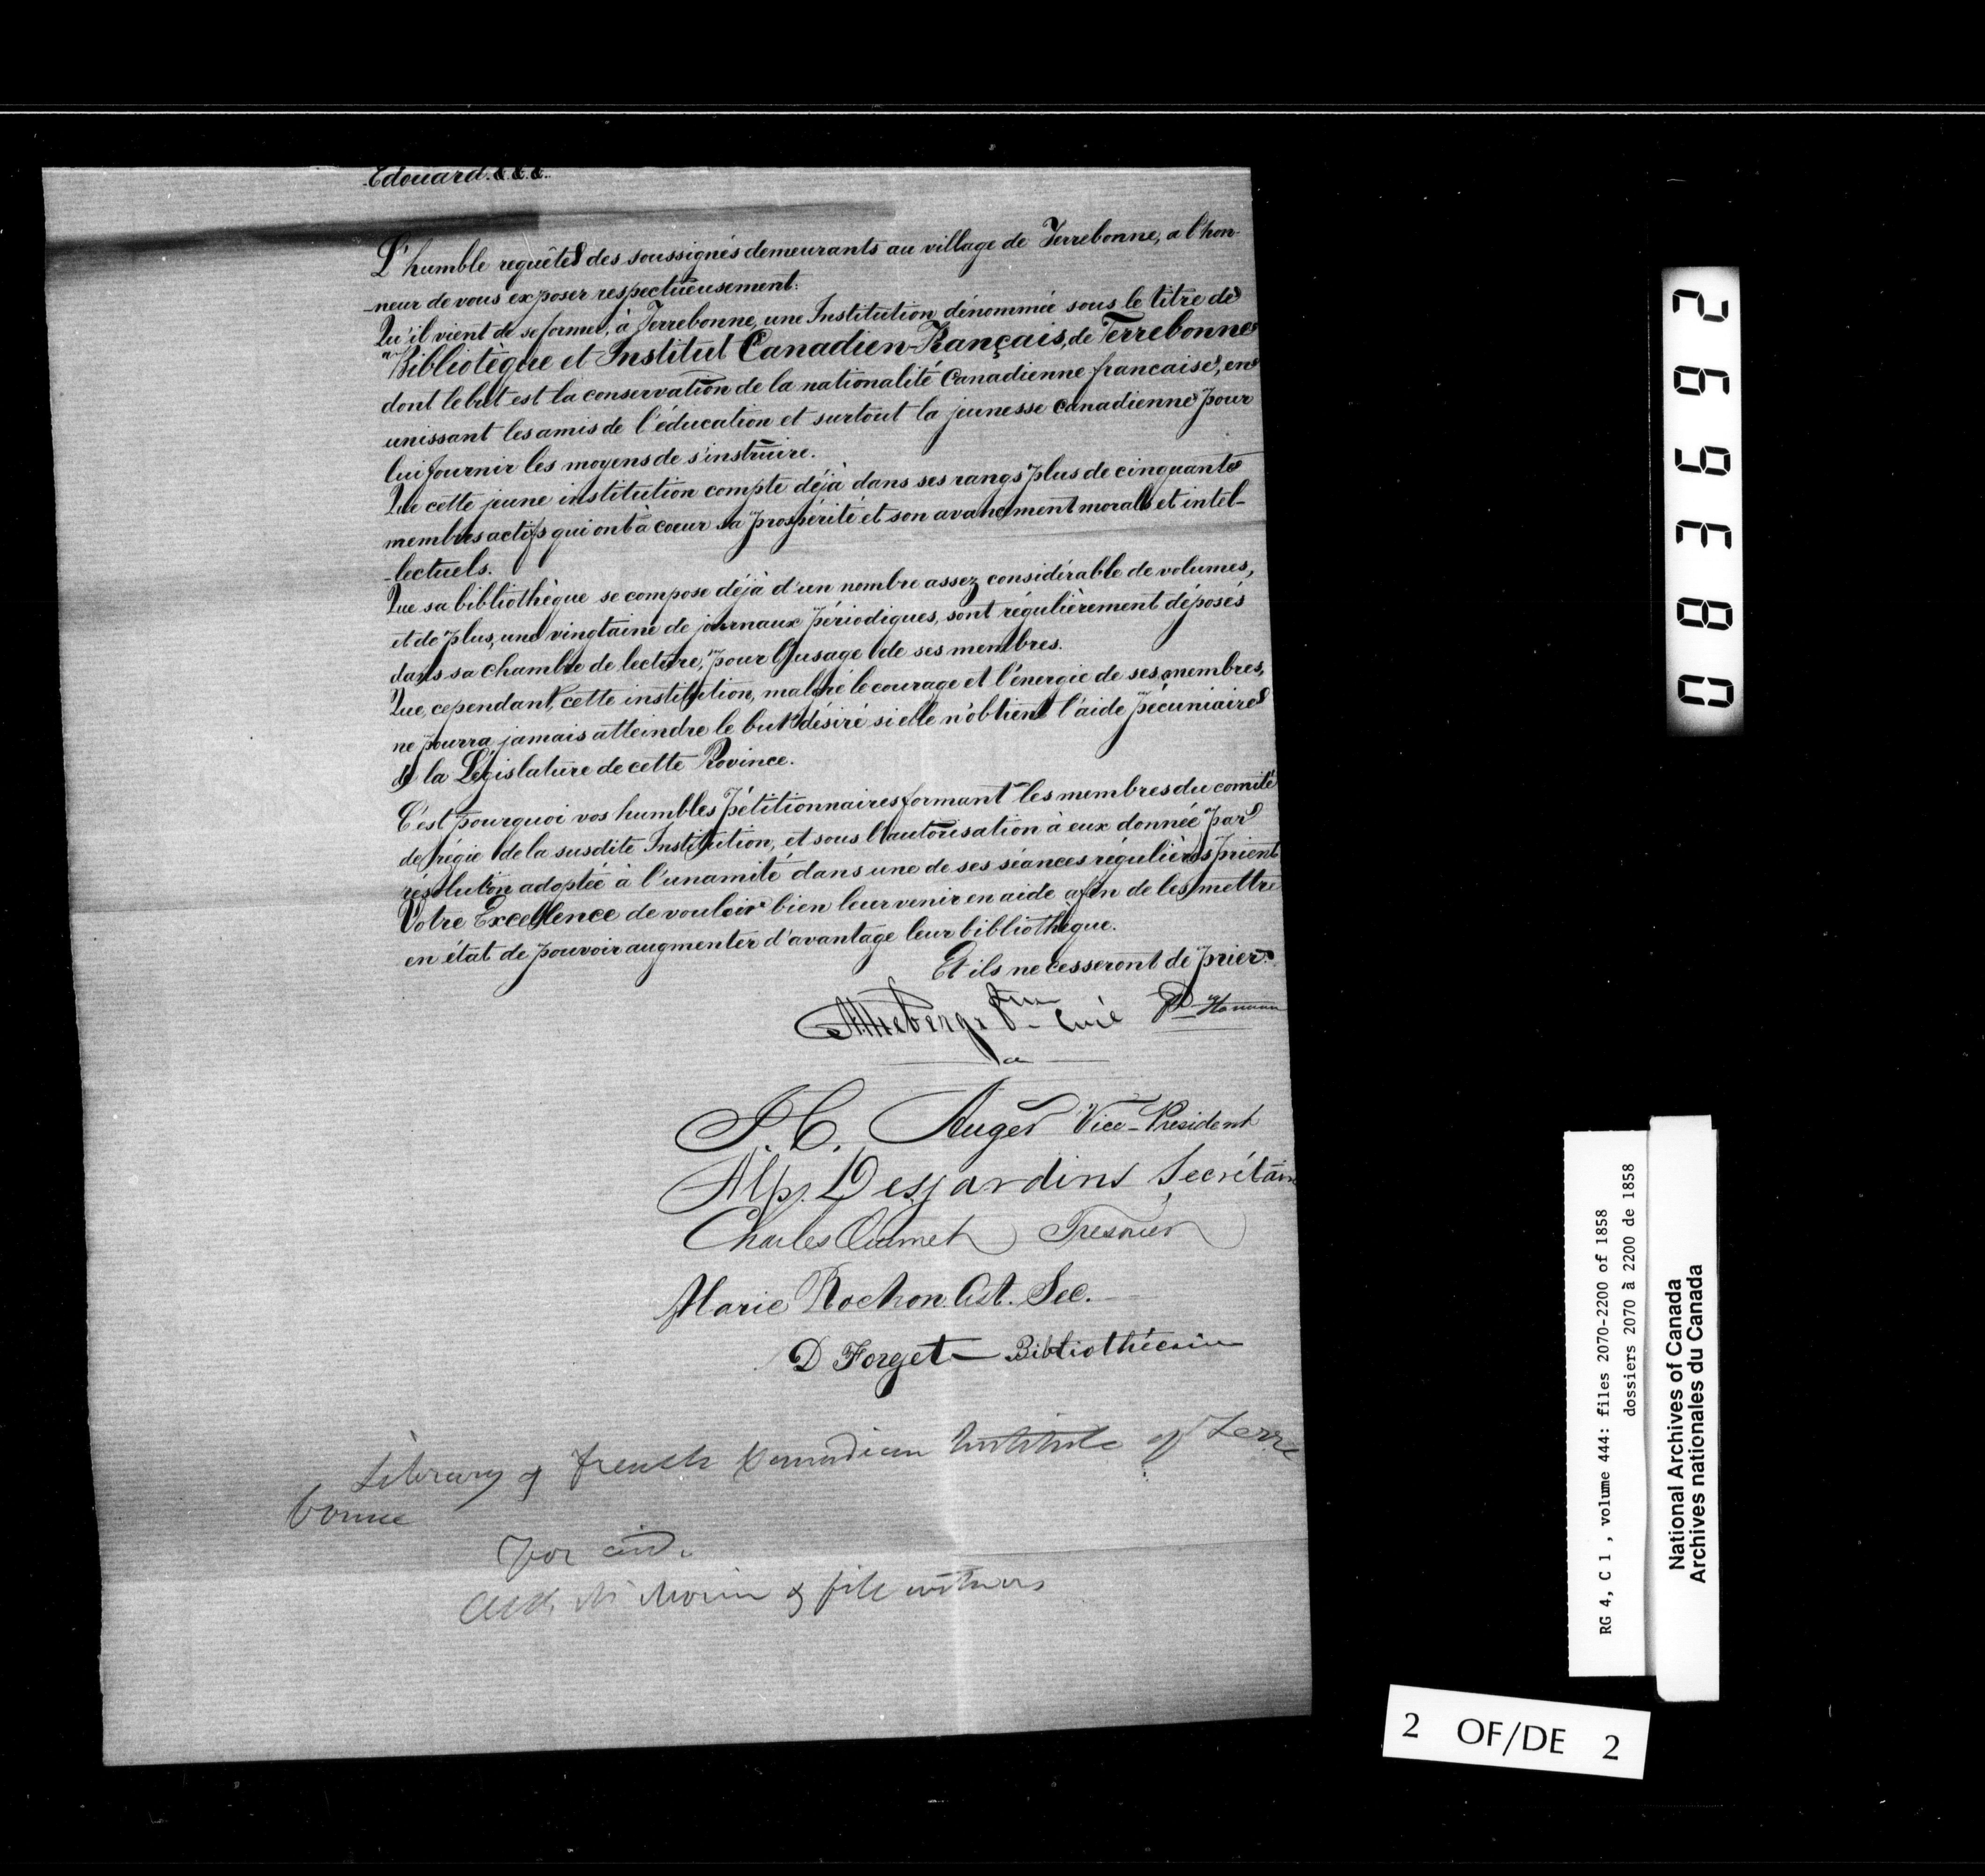 Edouard &.&.&.
L'humble requête des soussignés demeurants au village de Terrebonne, a l'hon-
-neur de vous exposer respectueusement:
Qu'il vient de se former, à Terrebonne, une Institution dénommée sous le titre de
"Bibliotèque et Institut Canadien-Français, de Terrebonne
dont le but est la conservation de la nationalité Canadienne francaise, en
unissant les amis de l'éducation et surtout la jeunesse canadienne pour
lui fournir les moyens de s'instruire.
Que cette jeune institution compte déjà dans ses rangs plus de cinquante
membres actifs qui ont à coeur sa prospérité et son avancment morals et intel-
-lectuels.
Que sa bibliothèque se compose déjà d'un nombre assez considérable de volumes,
et de plus, une vingtaine de journaux périodiques, sont régulièrement déposés
dans sa chambre de lecture, pour l'usage de ses membres.
Que, cependant, cette institution, malgré le courage et l'énergie de ses membres,
ne pourra jamais atteindre le but désiré si elle n'obtient l'aide pécuniaire
de la Législature de cette Province.
C'est pourquoi vos humbles pétitionnaires formant les membres du comité
de régie de la susdite Institution, et sous l'autorisation à eux donnée par
résolution adoptée à l'unamité dans une de ses séances régulières prient
Votre Excellence de vouloir bien leur venir en aide afin de les mettre
en état de pouvoir augmenter d'avantage leur bibliothèque.
Et ils ne cesseront de prier.
Curé
J. C. Auger Vice-Président
Alp. Desjardins Secrétaire
Charles Ouimet Tresorier
Marie Rochon Ast. Sec.
D Forget — Bibliothécaire
Library of French Canadian Institute of Terre
bonne
for aid.
RG 4, C 1 , volume 444: files 2070-2200 of 1858
dossiers 2070 à 2200 de 1858
National Archives of Canada
Archives nationales du Canada
2 OF/DE 2
083992